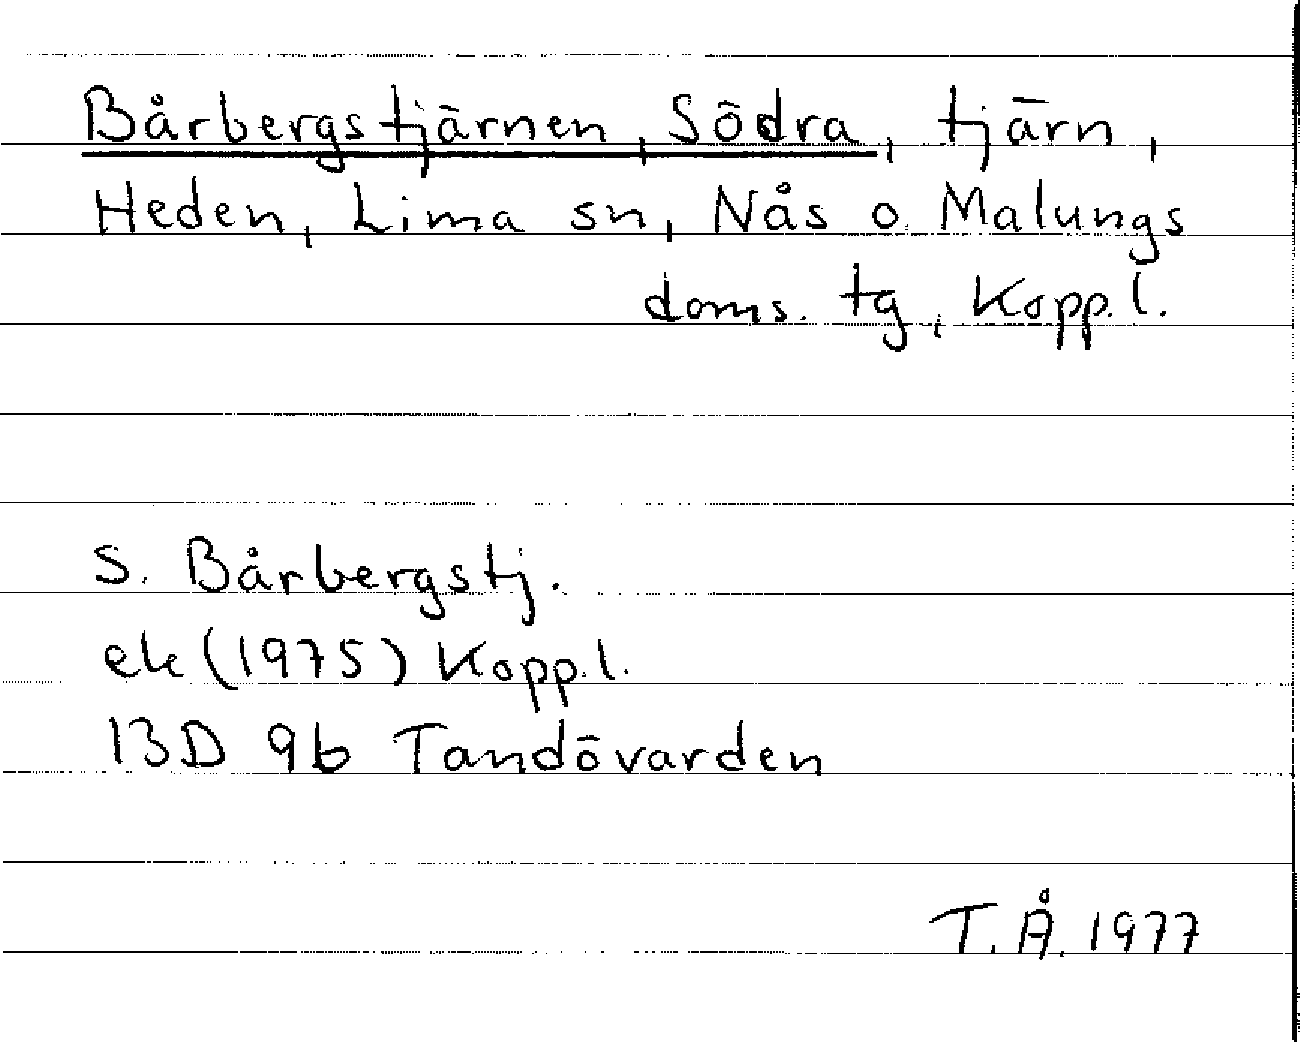 Bårbergstjärnen, Södra, tjärn,
Heden, Lima sn, Nås o. Malungs
doms. tg, Kopp.l.
S. Bårbergstj.
ek (1975) Kopp.l.
13D 9b Tandövarden
T.Å. 1977